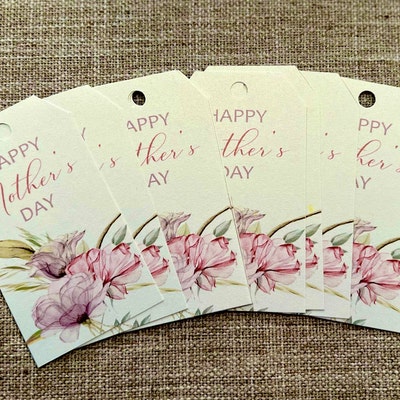 HAPPY
Mother's
DAY
APPY
other's
AY
HAPPY
Mother's
DAY
HAPPY
other's
DAY